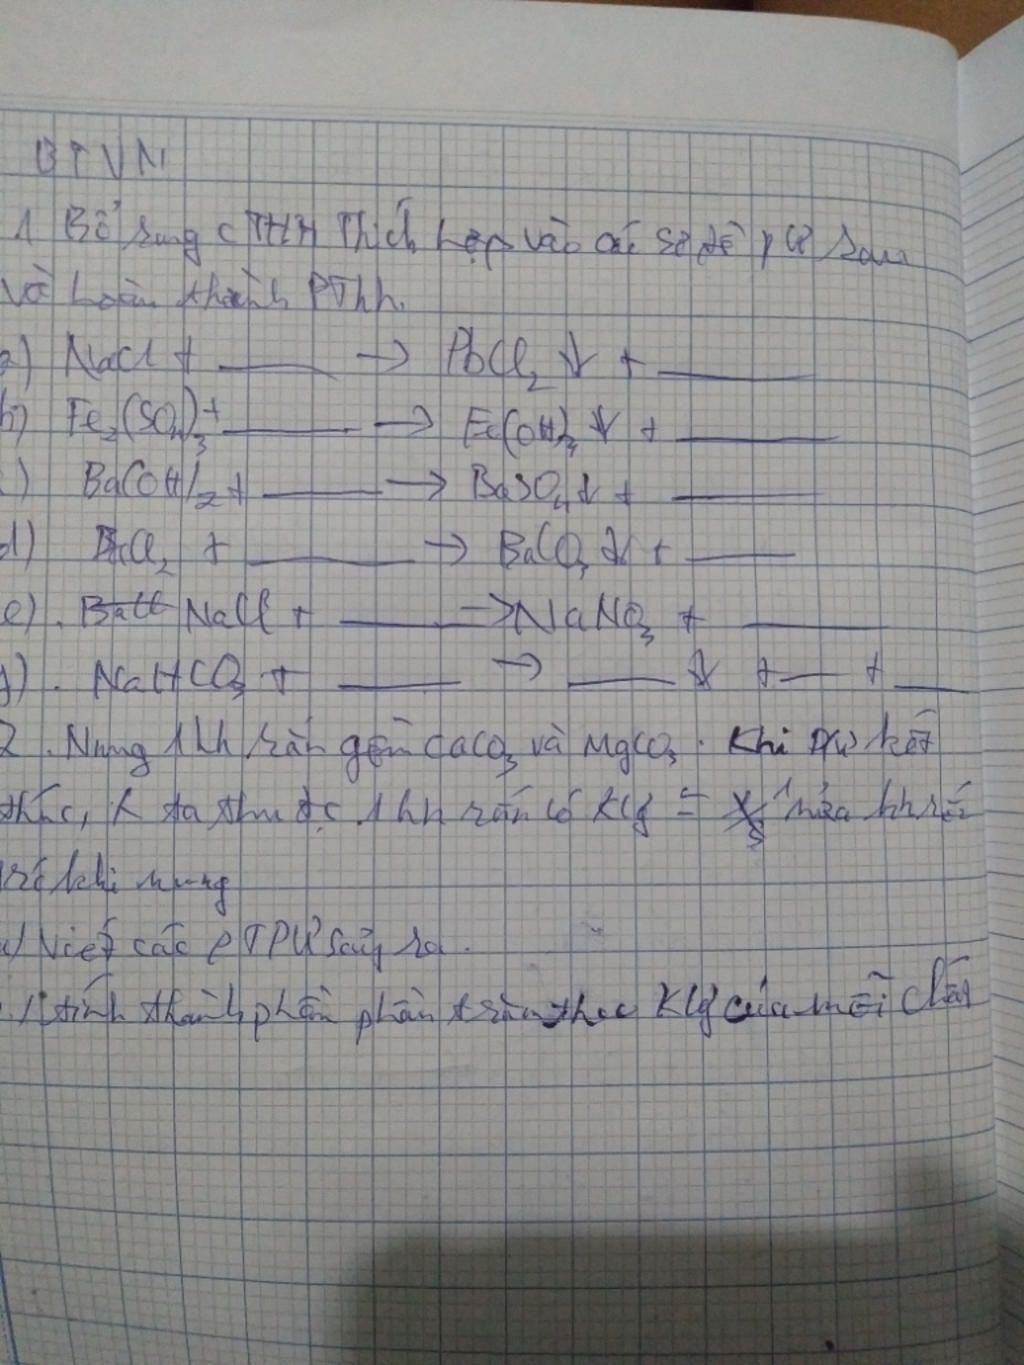 BTVN
1 Bổ sung CTHH Thích hợp vào các sơ đồ pư sau
và hoàn thành PThh.
a) NaCl + ____ → PbCl₂ ↓ + ____
b) Fe₂(SO₄)₃ + ____ → Fe(OH)₃ ↓ + ____
) Ba(OH)₂ + ____ → BaSO₄ ↓ + ____
d) BaCl₂ + ____ → BaCO₃ ↓ + ____
e). NaCl + ____ → NaNO₃ + ____
g). NaHCO₃ + ____ → ____ ↓ + ____ + ____
2. Nung 1 hh rắn gồm CaCO₃ và MgCO₃. Khi pư kết
thúc, ta thu đc 1 hh rắn có klg = 1 nửa hh rắn
trc khi nung
a) Viết các PTPƯ xảy ra.
tính thành phần phần trăm theo klg của mỗi chất